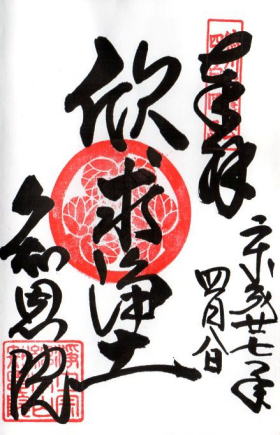 奉拝
平成廿七年
四月八日
欣求浄土
知恩院